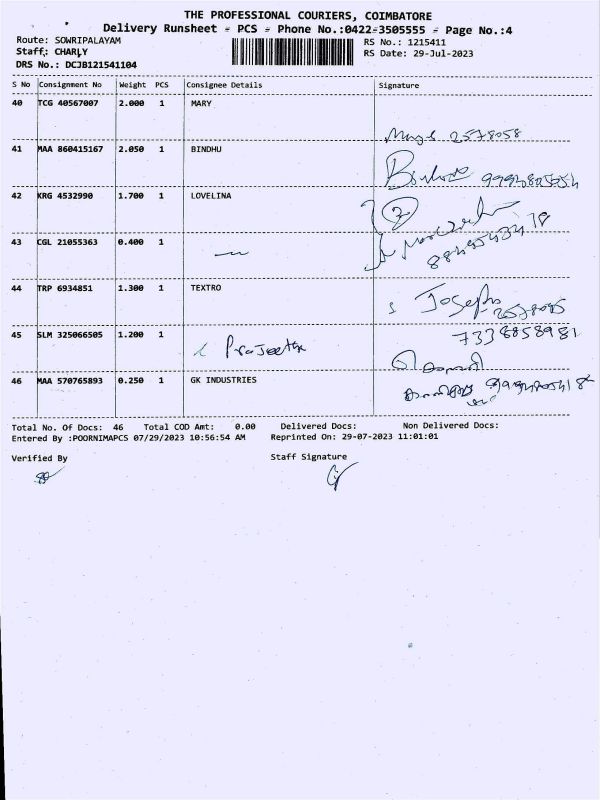 THE PROFESSIONAL COURIERS, COIMBATORE
Delivery Runsheet - PCS - Phone No.:0422-3505555 - Page No.:4
Route: SOWRIPALAYAM
RS No.: 1215411
Staff: CHARLY
RS Date: 29-Jul-2023
DRS No.: DCJB121541104
S No Consignment No Weight PCS Consignee Details Signature
40 TCG 40567007 2.000 1 MARY
2578058
41 MAA 860415167 2.050 1 BINDHU
42 KRG 4532990 1.700 1 LOVELINA
43 CGL 21055363 0.400 1
44 TRP 6934851 1.300 1 TEXTRO
Joseph
45 SLM 325066505 1.200 1
7338858981
46 MAA 570765893 0.250 1 GK INDUSTRIES
Total No. Of Docs: 46 Total COD Amt: 0.00 Delivered Docs: Non Delivered Docs:
Entered By :POORNIMAPCS 07/29/2023 10:56:54 AM Reprinted On: 29-07-2023 11:01:01
Verified By Staff Signature